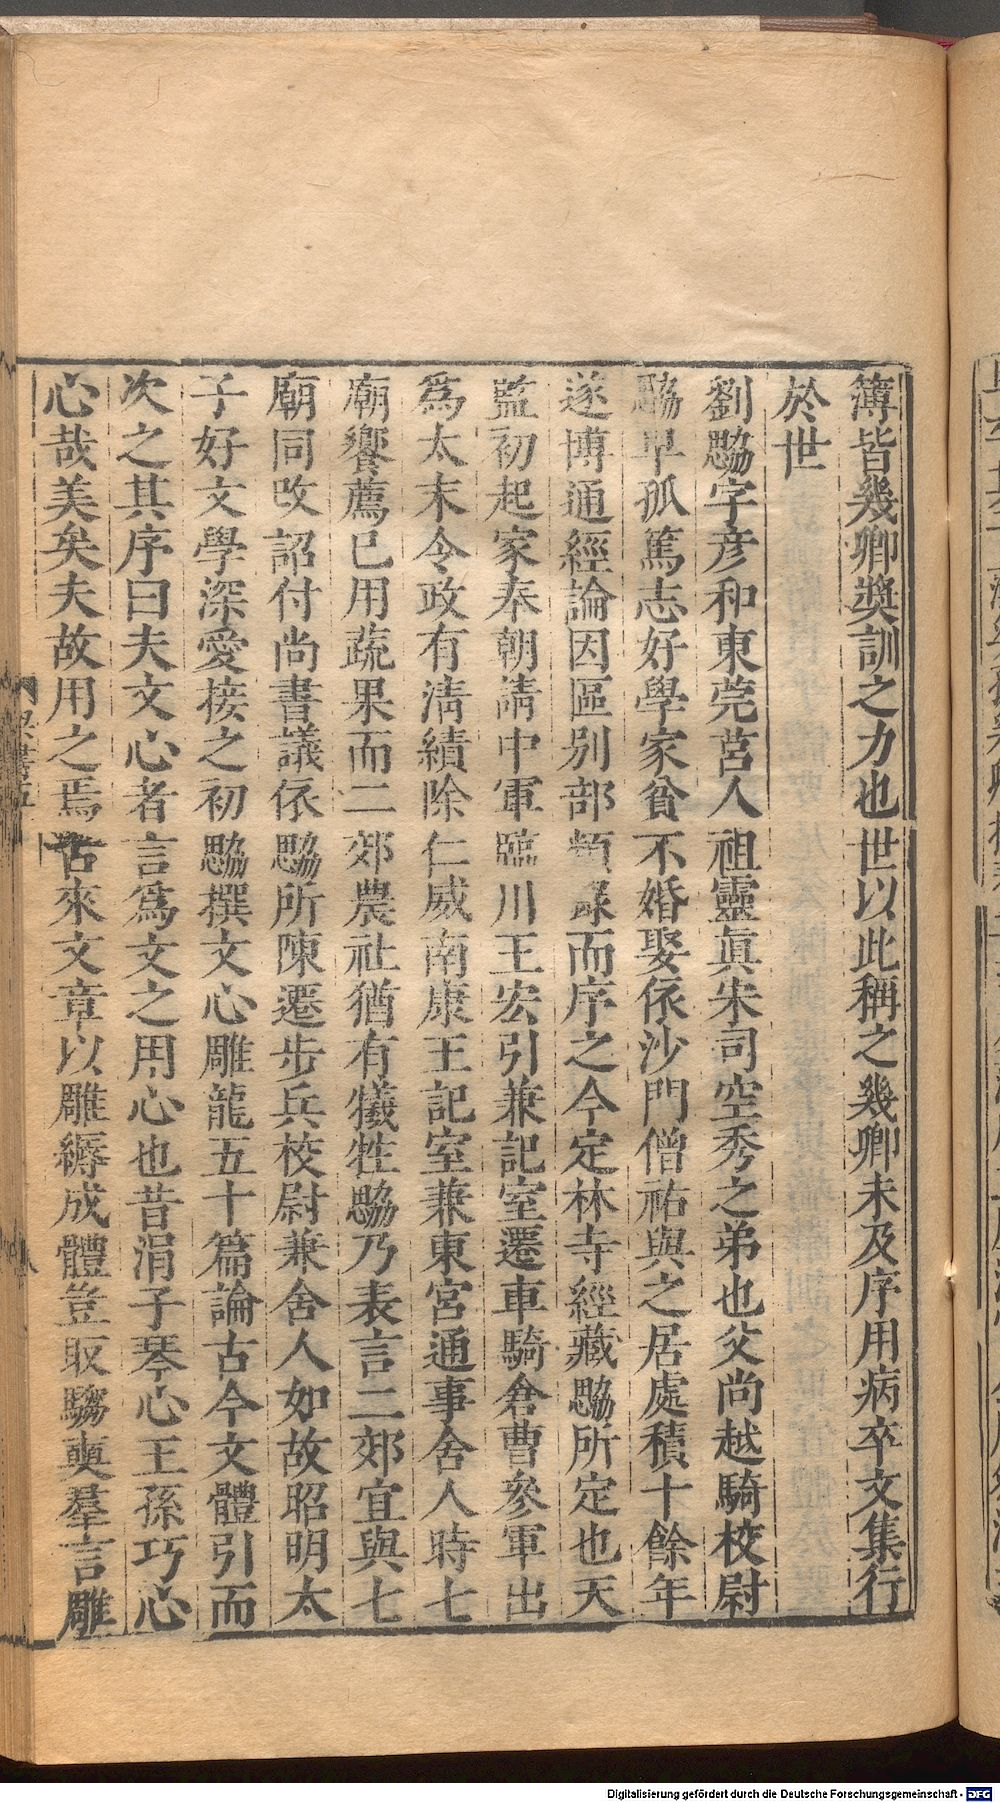 簿皆幾卿獎訓之力也世以此稱之幾卿未及序用病卒文集行
於世
劉勰字彦和東莞莒人祖靈眞宋司空秀之弟也父尚越騎校尉
勰早孤篤志好學家貧不婚娶依沙門僧祐與之居處積十餘年
遂博通經論因區别部類録而序之今定林寺經藏勰所定也天
監初起家奉朝請中軍臨川王宏引兼記室遷車騎倉曹參軍出
爲太末令政有清績除仁威南康王記室兼東宮通事舍人時七
廟饗薦已用蔬果而二郊農社猶有犧牲勰乃表言二郊宜與七
廟同改詔付尚書議依勰所陳遷步兵校尉兼舍人如故昭明太
子好文學深愛接之初勰撰文心雕龍五十篇論古今文體引而
次之其序曰夫文心者言爲文之用心也昔涓子琴心王孫巧心
心哉美矣夫故用之焉古來文章以雕縟成體豈取騶奭羣言雕
Digitalisierung gefördert durch die Deutsche Forschungsgemeinschaft - DFG